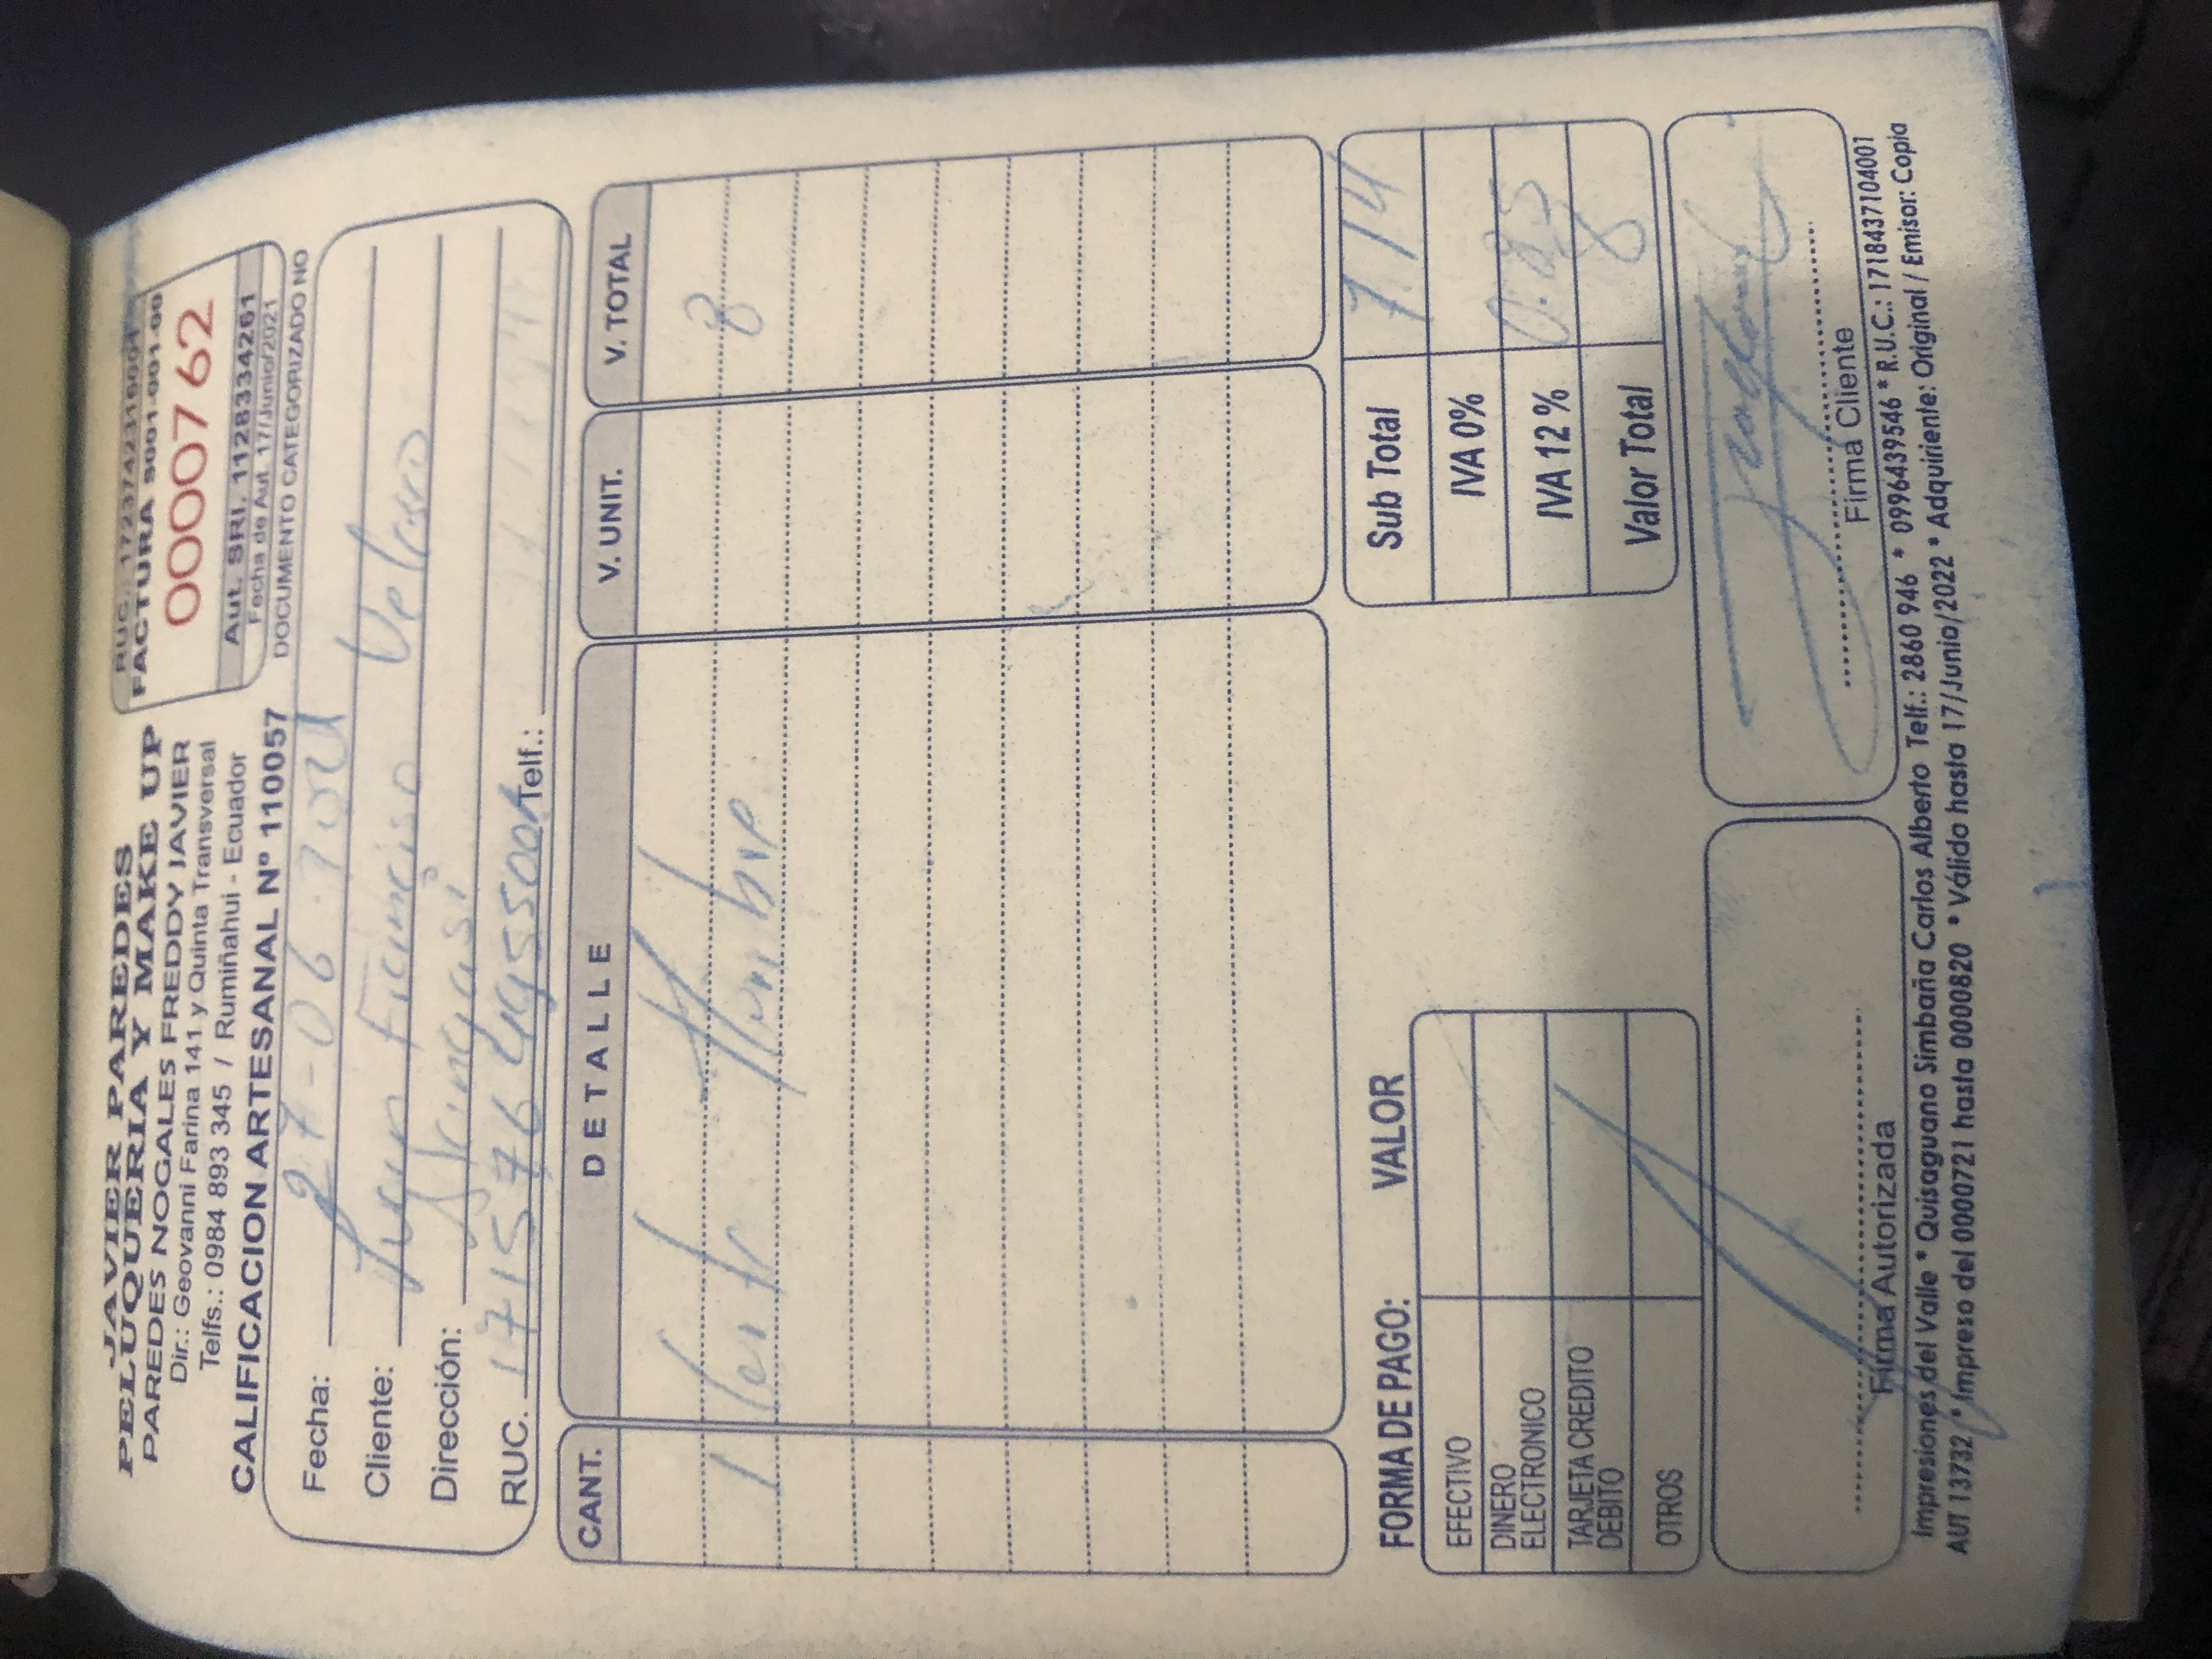 JAVIER PAREDES
PELUQUERIA Y MAKE UP
PAREDES NOGALES FREDDY JAVIER
Dir.: Geovanni Farina 141 y Quinta Transversal
Telfs.: 0984 893 345 / Rumiñahui - Ecuador
CALIFICACION ARTESANAL Nº 110057
RUC.: 1723742316001
FACTURA S001-001-00
0000762
Aut. SRI. 1128334261
Fecha de Aut. 17/Junio/2021
DOCUMENTO CATEGORIZADO NO
Fecha: 27-06-2021
Cliente: Juan Francisco Velasco
Dirección:
RUC. Telf.:
CANT. DETALLE V. UNIT. V. TOTAL
1 Corte Hombre 8
Sub Total 7.14
IVA 0%
IVA 12 % 0.85
Valor Total 8
FORMA DE PAGO: VALOR
EFECTIVO
DINERO ELECTRONICO
TARJETA CREDITO DEBITO
OTROS
Firma Autorizada
Firma Cliente
Impresiones del Valle * Quisaguano Simbaña Carlos Alberto Telf.: 2860 946 * 0996439546 * R.U.C.: 1718437104001
AUT 13732 * Impreso del 0000721 hasta 0000820 * Válido hasta 17/Junio/2022 * Adquiriente: Original / Emisor: Copia